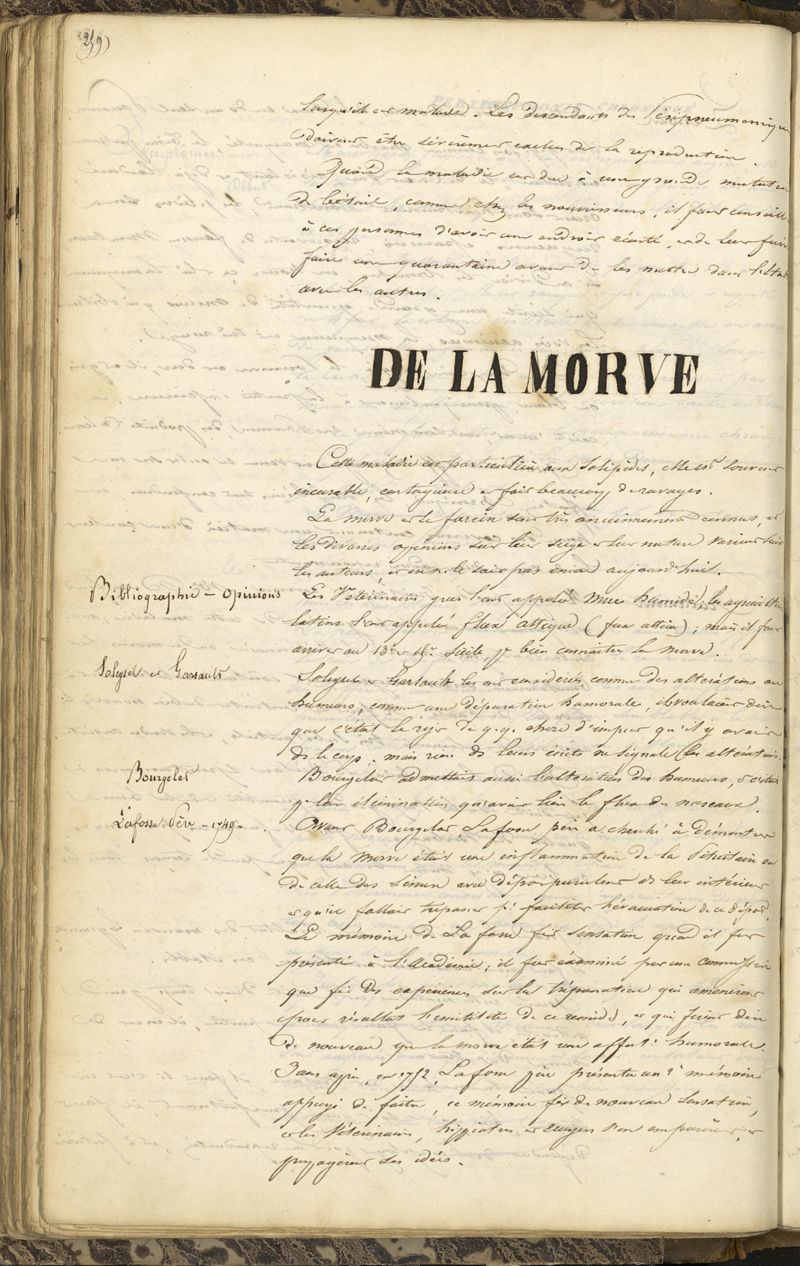 219)
lorsqu'il est malade. Les descendants des Péripneumoniques
doivent être sévèrement exclus de la reproduction.
Quand la maladie est due à une grande mutation
de bétail, comme chez les nourrisseurs, il faut conseiller
à ces personnes d'avoir un endroit écarté, et de leur
faire une quarantaine avant de les mettre dans l'étable
avec les autres.
DE LA MORVE
Cette maladie est particulière aux Solipèdes, elle est souvent
incurable, contagieuse et fait beaucoup de ravages.
La morve et le farcin sont très anciennement connus, et
les diverses opinions sur leur siège et leur nature varient
les auteurs, et on ne le sait pas encore aujourd'hui.
Bibliographie – Opinions
Les Vétérinaires grecs l'ont appelé Mue humide, les
latins l'ont appelé flux attique ( ); mais il faut
arriver au siècle pr bien connaître la morve.
Soleysel et Garsault
Soleysel et Garsault les ont considérés comme des altérations des
humeurs, comme une dépuration humorale, ils voulaient dire
que c'était le rejet de q.q. chose d'impur qu'il y avait
ds le corps; mais rien ds leurs écrits ne signale les altérations.
Bourgelat
Bourgelat admettait aussi l'altération des humeurs,
pr leur élimination qu'avait lieu le flux des naseaux.
Lafosse Père – 1749 –
Avant Bourgelat, Lafosse père a cherché à démontrer
que la morve était une inflammation de la Pituitaire ou
de celle des Sinus avec dépôt purulent ds leur intérieur
et qu'il fallait trépaner pr faciliter l'évacuation de ce dépôt.
Le mémoire de Lafosse fit sensation quand il fut
présenté à l'Académie; il fut examiné par une commission
que fit des expériences sur la trépanation qui amenèrent
pour résultat l'inutilité de ce remède, et qui firent dire
de nouveau que la morve était une affect: humorale.
3 ans après, en 1752, Lafosse père présenta un 2e mémoire
appuyé de faits, ce mémoire fit de nouveau sensation,
et les Vétérinaires, hippiatres et s'en emparèrent et
propagèrent ses idées.